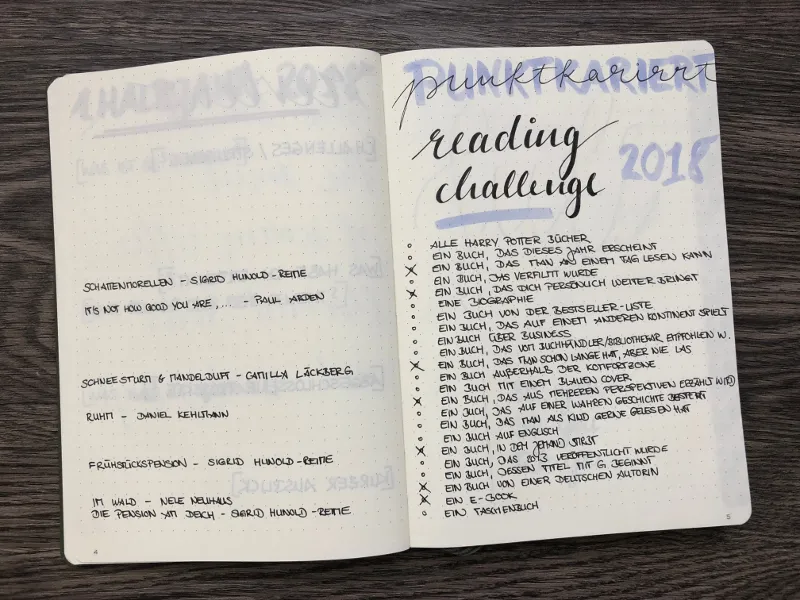 SCHATTENMORELLEN - SIGRID HUNOLD-REIME
IT'S NOT HOW GOOD YOU ARE, ... - PAUL ARDEN
SCHNEESTURM & MANDELDUFT - CAMILLA LÄCKBERG
RUHM - DANIEL KEHLMANN
FRÜHSTÜCKSPENSION - SIGRID HUNOLD-REIME
IM WALD - NELE NEUHAUS
DIE PENSION AM DEICH - SIGRID HUNOLD-REIME
4
PUNKTKARIERT
punktkariert
reading
challenge
2018
ALLE HARRY POTTER BÜCHER
EIN BUCH, DAS DIESES JAHR ERSCHEINT
EIN BUCH, DAS MAN AN EINEM TAG LESEN KANN
EIN BUCH, DAS VERFILMT WURDE
EIN BUCH, DAS DICH PERSÖNLICH WEITER BRINGT
EINE BIOGRAPHIE
EIN BUCH VON DER BESTSELLER-LISTE
EIN BUCH, DAS AUF EINEM ANDEREN KONTINENT SPIELT
EIN BUCH ÜBER BUSINESS
EIN BUCH, DAS VOM BUCHHÄNDLER/BIBLIOTHEKAR EMPFOHLEN W.
EIN BUCH, DAS MAN SCHON LANGE HAT, ABER NIE LAS
EIN BUCH AUßERHALB DER KOMFORTZONE
EIN BUCH MIT EINEM BLAUEN COVER
EIN BUCH, DAS AUS MEHREREN PERSPEKTIVEN ERZÄHLT WIRD
EIN BUCH, DAS AUF EINER WAHREN GESCHICHTE BESTEHT
EIN BUCH, DAS MAN ALS KIND GERNE GELESEN HAT
EIN BUCH AUF ENGLISCH
EIN BUCH, IN DEM JEMAND STIRBT
EIN BUCH, DAS 2013 VERÖFFENTLICHT WURDE
EIN BUCH, DESSEN TITEL MIT G BEGINNT
EIN BUCH VON EINER DEUTSCHEN AUTORIN
EIN E-BOOK
EIN TASCHENBUCH
5